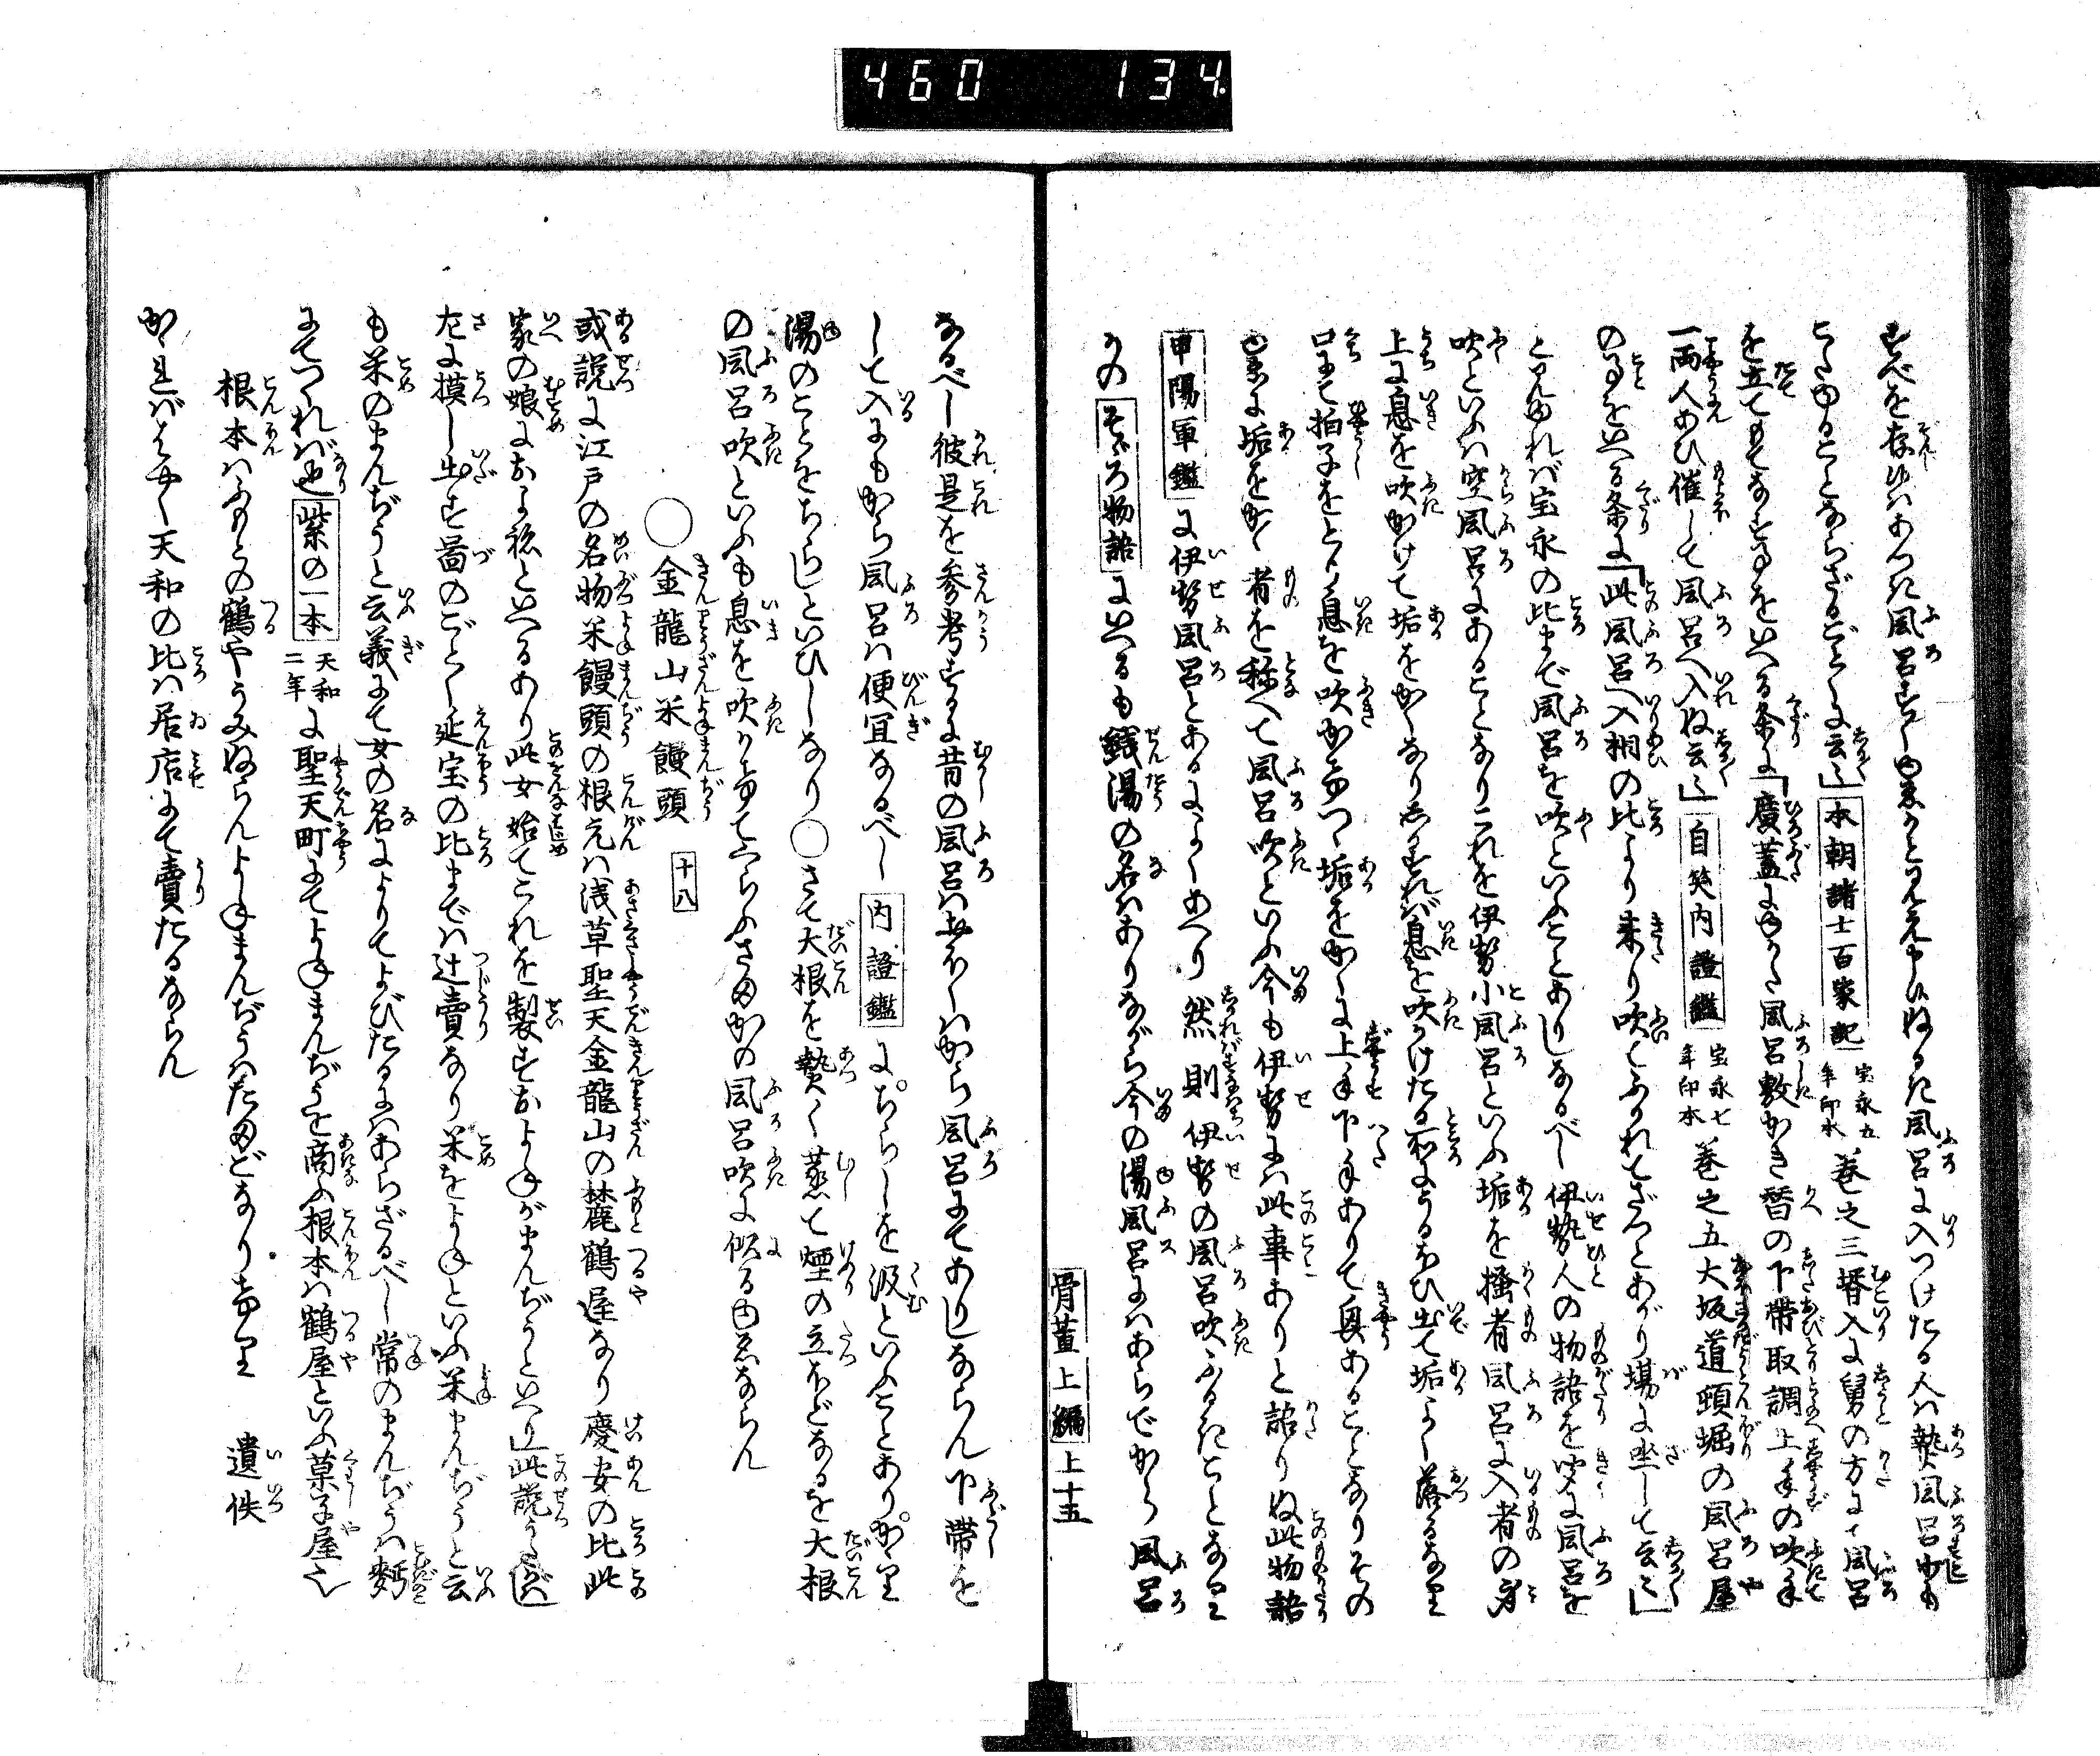 460 134.
すべを存ぜはあつき風呂すくしゆゑかと見え申候ぬるき風呂に入つけたる人は熱風呂ゆも
こたゆることならざるごとくに云云」本朝諸士百家記 宝永五年印本 巻之三聟入に舅の方にて風呂
を立てもてなす事をいへる条に「廣蓋にゆかた風呂敷かき替の下帯取調上手の吹手
一両人あひ催して風呂へ入れぬ云云」自笑内證鑑 宝永七年印本 巻之五大坂道頓堀の風呂屋
の事をいへる条に「此風呂入相の比より来り吹てふかれてざつとあがり場に坐して云云」
と見ゆれば宝永の比まで風呂を吹といふことありしなるべし 伊勢人の物語を聞に風呂を
吹といふは空風呂にあることなりこれを伊勢小風呂といふ垢を掻者風呂に入者の身
上に息を吹かけて垢をかくなりしかすれば息を吹かけたる所にうるほひ出て垢よく落るなり
口にて拍子をとり息を吹かけつゝ垢をかくに上手下手ありて興あることなりその
ゆゑに垢をかく者を称へて風呂吹といふ今も伊勢には此事ありと語りぬ此物語
甲陽軍鑑に伊勢風呂とあるによくあへり 然則伊勢の風呂吹ふるきことなるべし
かの そゞろ物語 にいへるも銭湯の名はありながら今の湯風呂にはあらでから風呂
骨董上編上十五
なるべし彼是を参考するに昔の風呂はおほくはから風呂にてありしならん下帯を
して入にもから風呂は便宜なるべし 内證鑑に「ちらしを汲といふことあり」かゝり
湯のことをちらしといひしなり○さて大根を熱く蒸て煙の立ほどなるを大根
の風呂吹といふも息を吹かけてくらふさまかの風呂吹に似るゆゑならん
○金龍山米饅頭 十八
或説に江戸の名物米饅頭の根元は浅草聖天金龍山の麓鶴屋なり慶安の比此
家の娘におよねといへるあり此女始てこれを製すおよねがまんぢうといへり」此説うたがはし
左に摸し出す図のごとく延宝の比までは辻賣なり米をよねといふ米まんぢうと云
も米のまんぢうと云義にて女の名によりてよびたるにはあらざるべし常のまんぢうは麪
にてつくれば也 紫の一本 天和二年 に聖天町にてよねまんぢうを商ふ根本は鶴屋といふ菓子屋也
根本はふもとの鶴やうみぬらんよねまんぢうはたまごなりけり 遺佚
かゝればはやく天和の比は居店にて賣たるならん